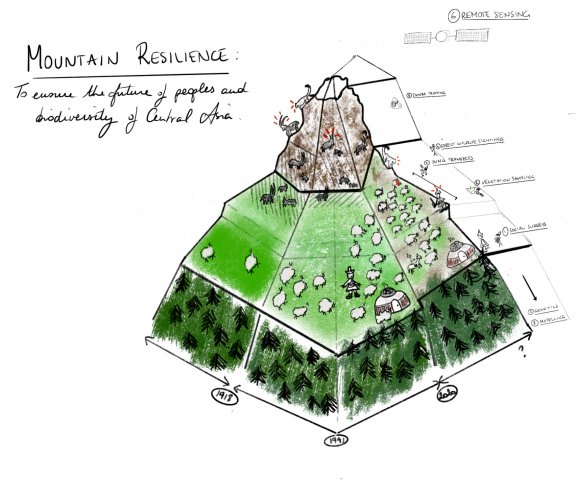 MOUNTAIN RESILIENCE:
To ensure the future of peoples and
biodiversity of Central Asia.
⑥ REMOTE SENSING
CAMERA TRAPPING
DIRECT WILDLIFE SIGHTINGS
DUNG TRANSECTS
④ VEGETATION SAMPLING
① SOCIAL SURVEYS
GENETICS
MODELLING
?
1918
1991